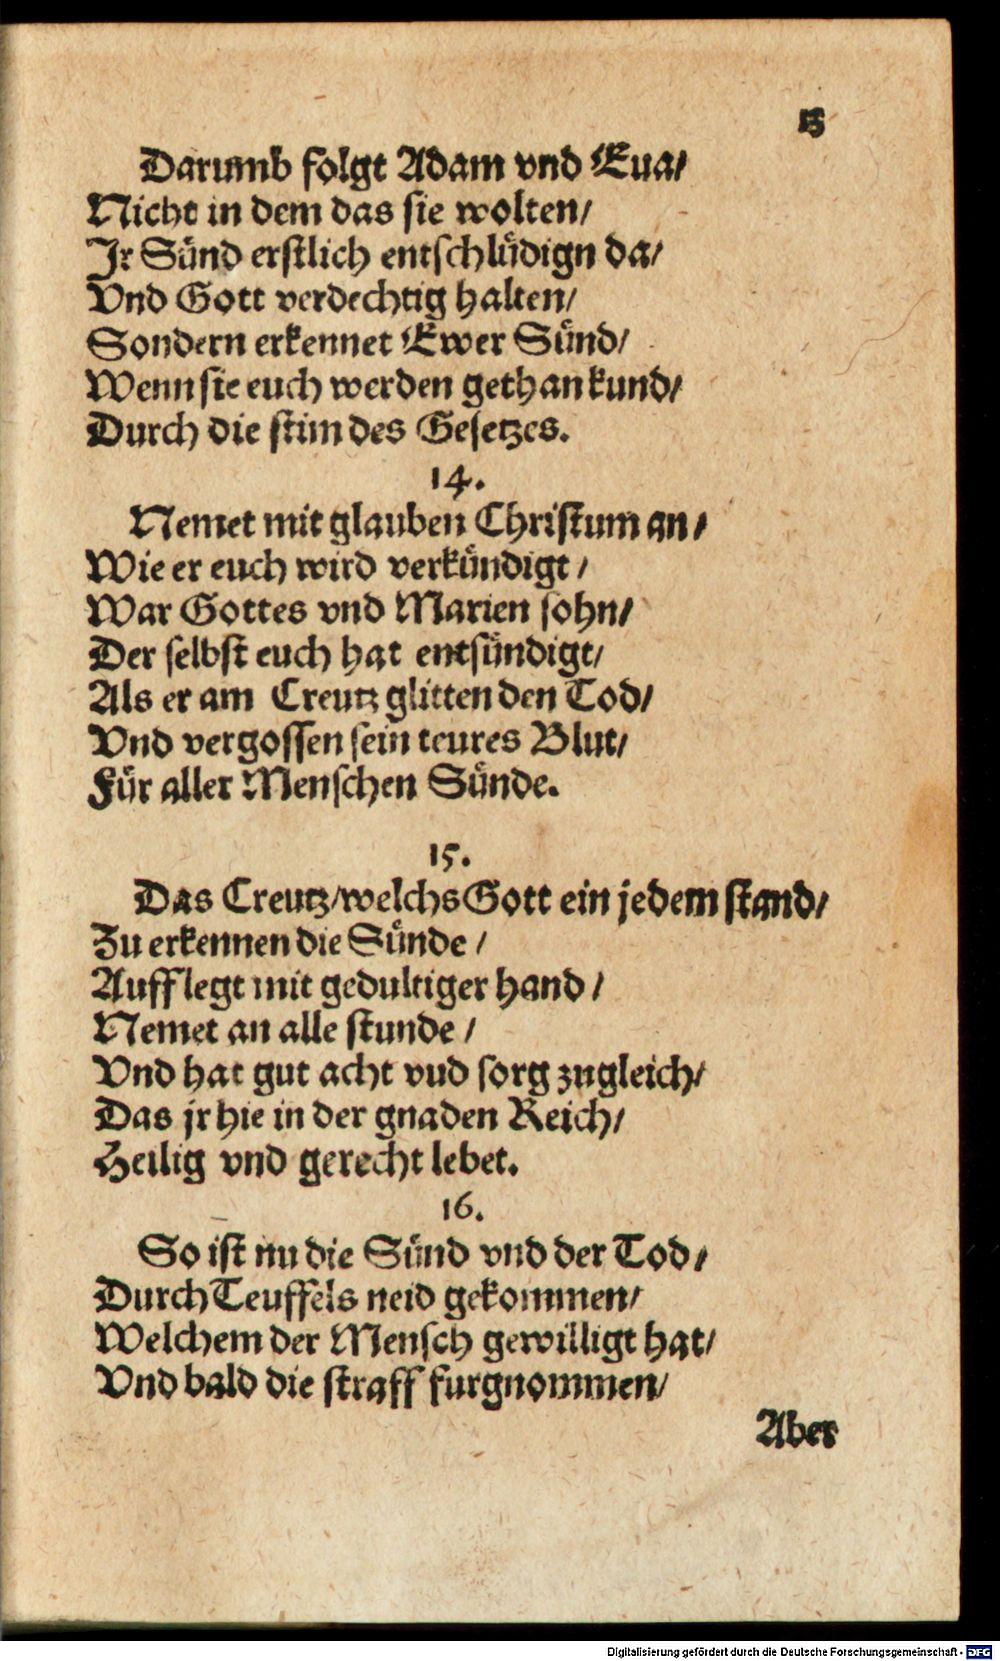 13
Darumb folgt Adam vnd Eua/
Nicht in dem das sie wolten/
Jr Sünd erstlich entschlüdign da/
Vnd Gott verdechtig halten/
Sondern erkennet Ewer Sünd/
Wenn sie euch werden gethan kund/
Durch die stim des Gesetzes.
14.
Nemet mit glauben Christum an/
Wie er euch wird verkündigt/
War Gottes vnd Marien sohn/
Der selbst euch hat entsündigt/
Als er am Creutz glitten den Tod/
Vnd vergossen sein teures Blut/
Für aller Menschen Sünde.
15.
Das Creutz/welchs Gott ein jedem stand/
Zu erkennen die Sünde/
Aufflegt mit gedultiger hand/
Nemet an alle stunde/
Vnd hat gut acht vud sorg zugleich/
Das jr hie in der gnaden Reich/
Heilig vnd gerecht lebet.
16.
So ist nu die Sünd vnd der Tod/
Durch Teuffels neid gekommen/
Welchem der Mensch gewilligt hat/
Vnd bald die straff furgnommen/
Aber
Digitalisierung gefördert durch die Deutsche Forschungsgemeinschaft - DFG